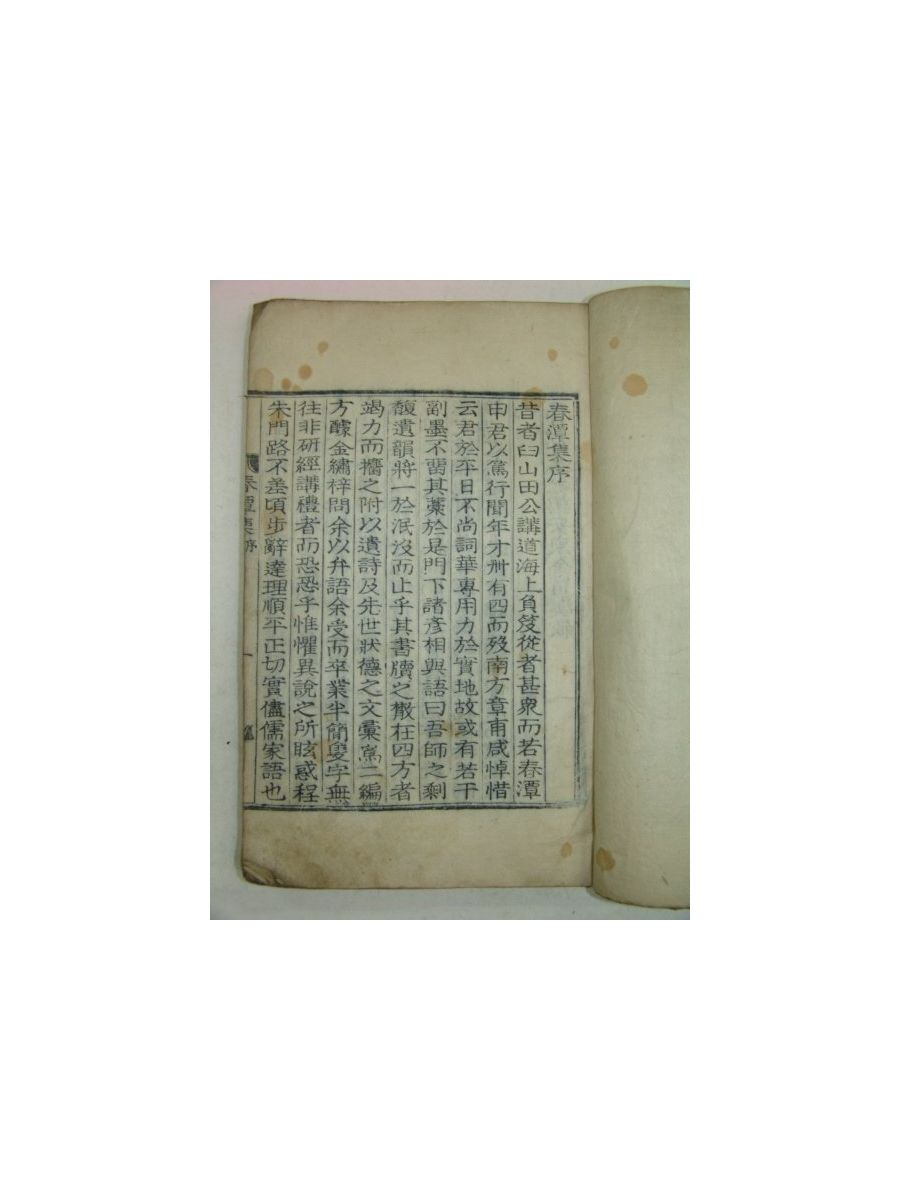 春潭集序
昔者臼山田公講道海上負笈從者甚衆而若春潭
申君以篤行聞年才卅有四而歿南方章甫咸悼惜
云君於平日不尚詞華專用力於實地故或有若干
副墨不留其藁於是門下諸彦相與語曰吾師之剩
馥遺韻將一於泯沒而止乎其書牘之散在四方者
竭力而搜之附以遺詩及先世狀德之文彙爲二編
方醵金繡梓問余以弁語余受而卒業半簡隻字無
往非硏經講禮者而恐恐乎惟懼異說之所眩惑程
朱門路不差頃步辭達理順平正切實儘儒家語也
春潭集 序
一